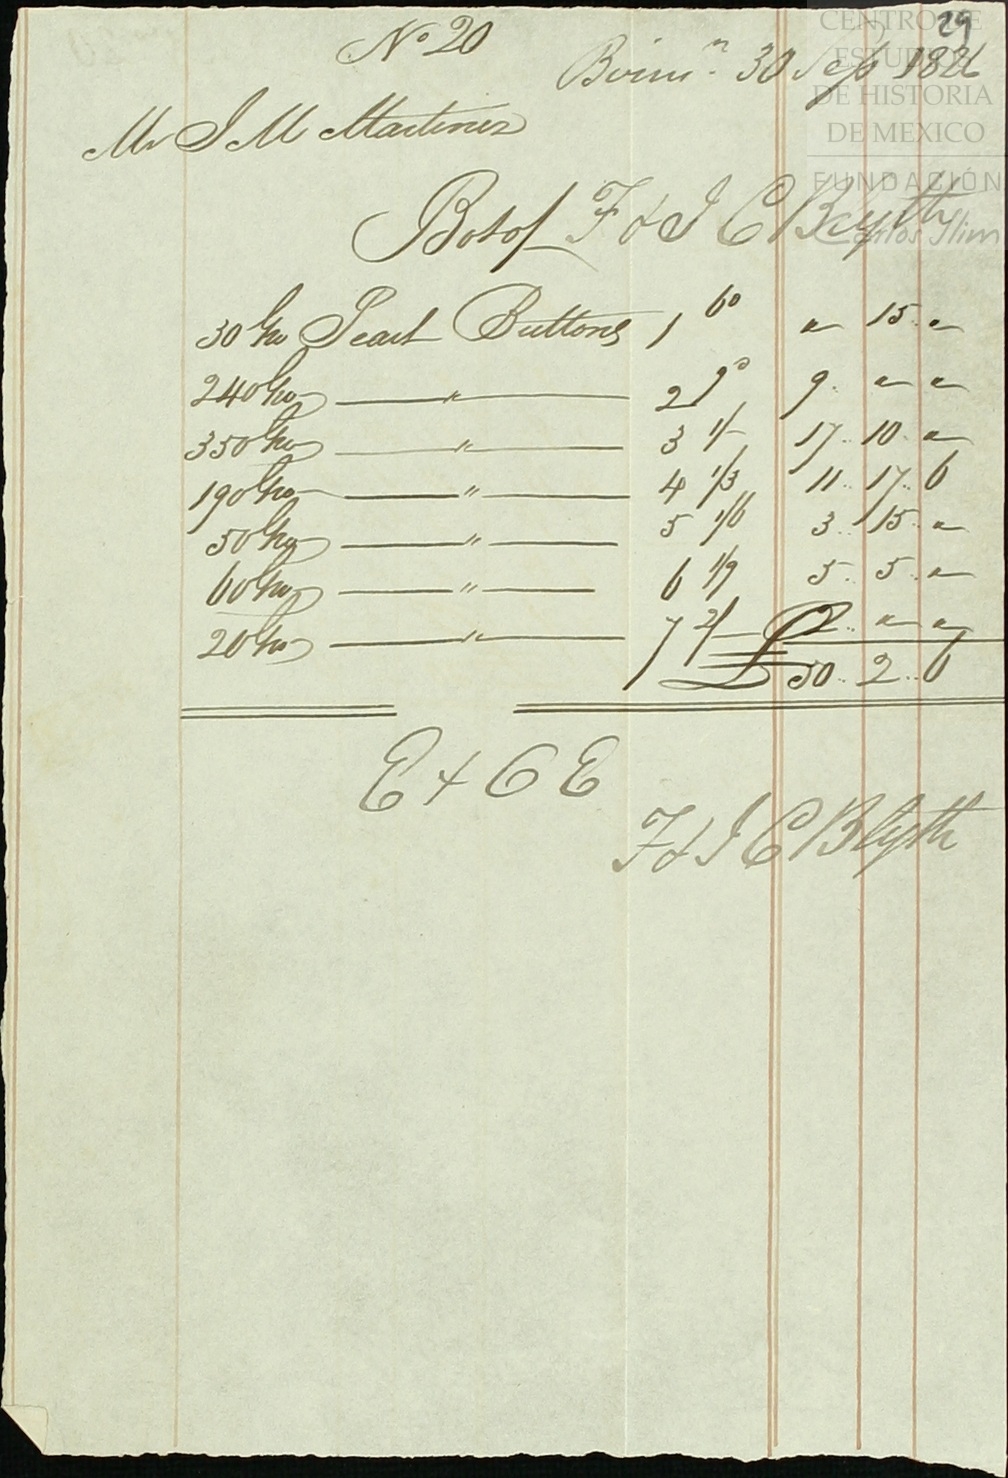 29
No 20
Birm.m 30 Sep 1826
Mr J M Martinez
Botof F & J C Blyth
30 Gro Pearl Buttons 1 6o " 15 "
240 Gro " 2 9o 9 " "
350 Gro " 3 1/- 17 10 "
190 Gro " 4 1/3 11 17 6
50 Gro " 5 1/6 3 15 "
60 Gro " 6 1/9 5 5 "
20 Gro " 7 2/- 2 " "
£ 50 2 6
E & O E
F & J C Blyth
CENTRO DE
ESTUDIOS
DE HISTORIA
DE MEXICO
FUNDACIÓN
Carlos Slim